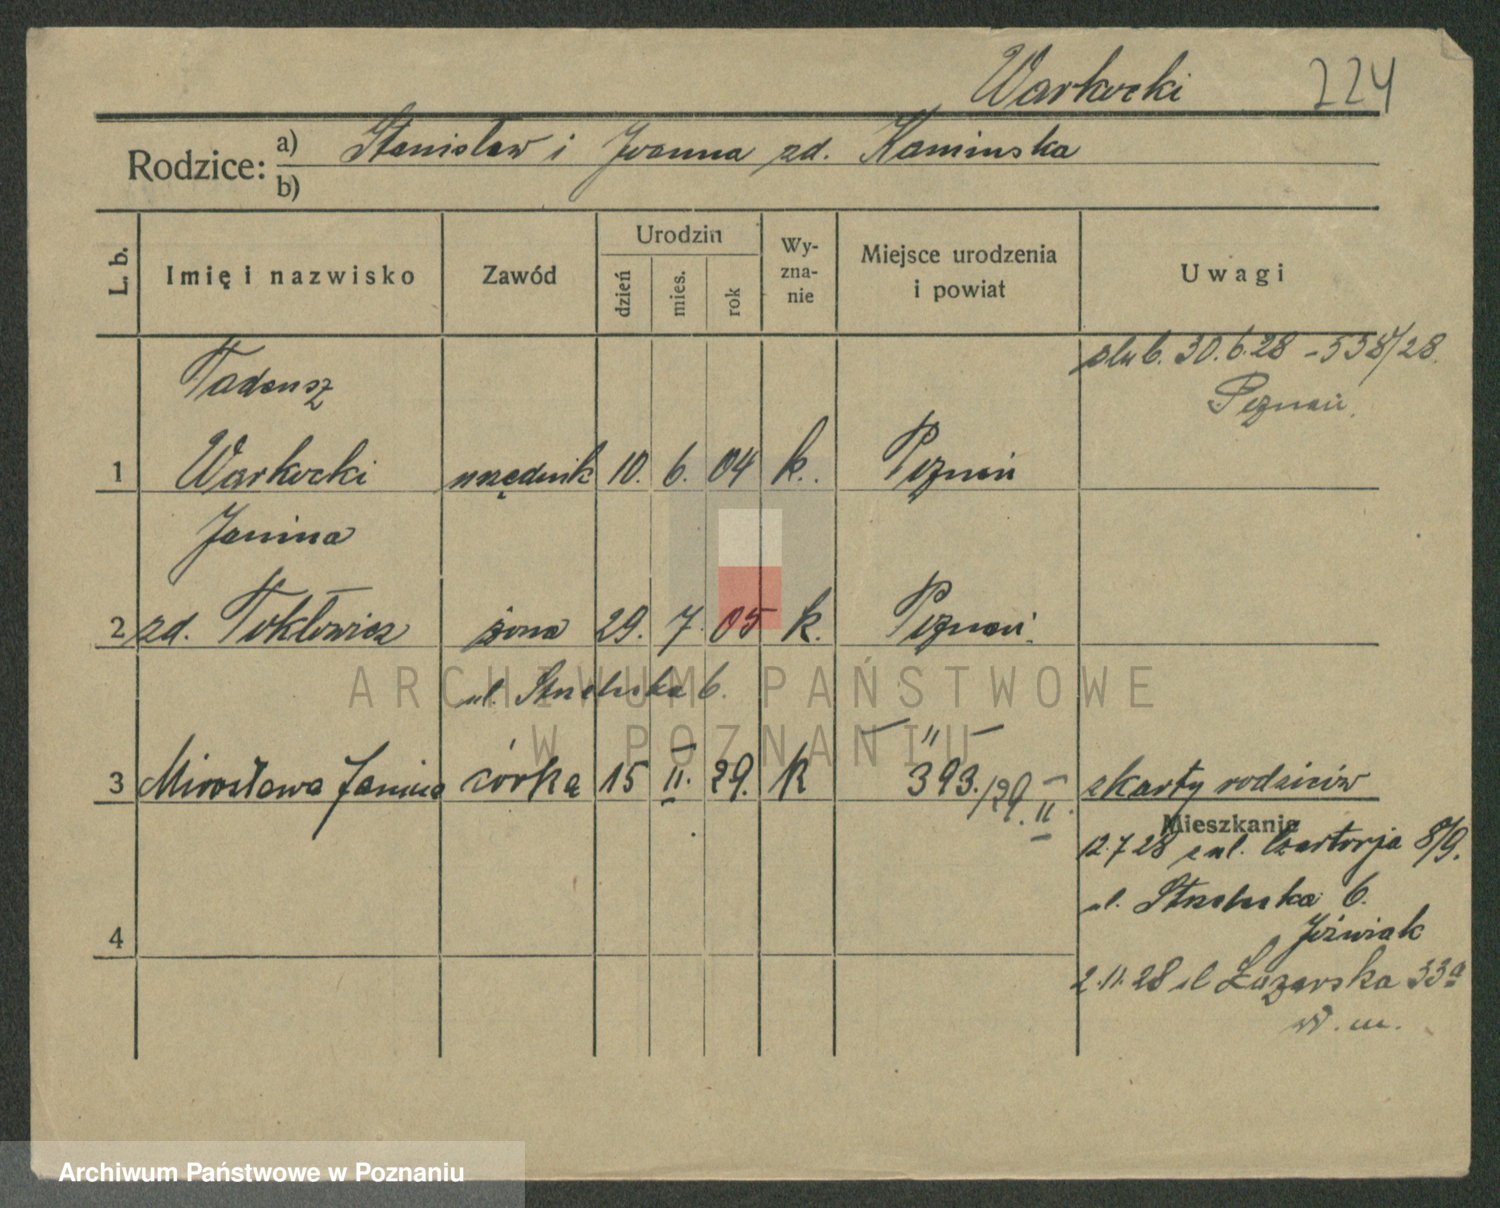 Warkocki 224
Rodzice: a) Stanisław i Joanna zd. Kaminska
b)
L. b. Imię i nazwisko Zawód Urodzin dzień mies. rok Wy-zna-nie Miejsce urodzenia i powiat Uwagi
ślub. 30.6.28 - 538/28
Poznań.
Tadeusz
1 Warkocki urzędnik 10. 6. 04 k. Poznań
Janina
2 zd. Tokłowicz żona 29. 7. 05 k. Poznań
ul. Strzelecka 6.
3 Mirosława Janina córka 15 II. 29. k — " —
393./29. II. z karty rodziców
Mieszkanie
12.7.28 z ul. Czartorja 8/9.
ul. Strzelecka 6.
Jóźwiak
4
2.11.28 ul Łazarska 33a
w. m.
ARCHIWUM PAŃSTWOWE
W POZNANIU
Archiwum Państwowe w Poznaniu